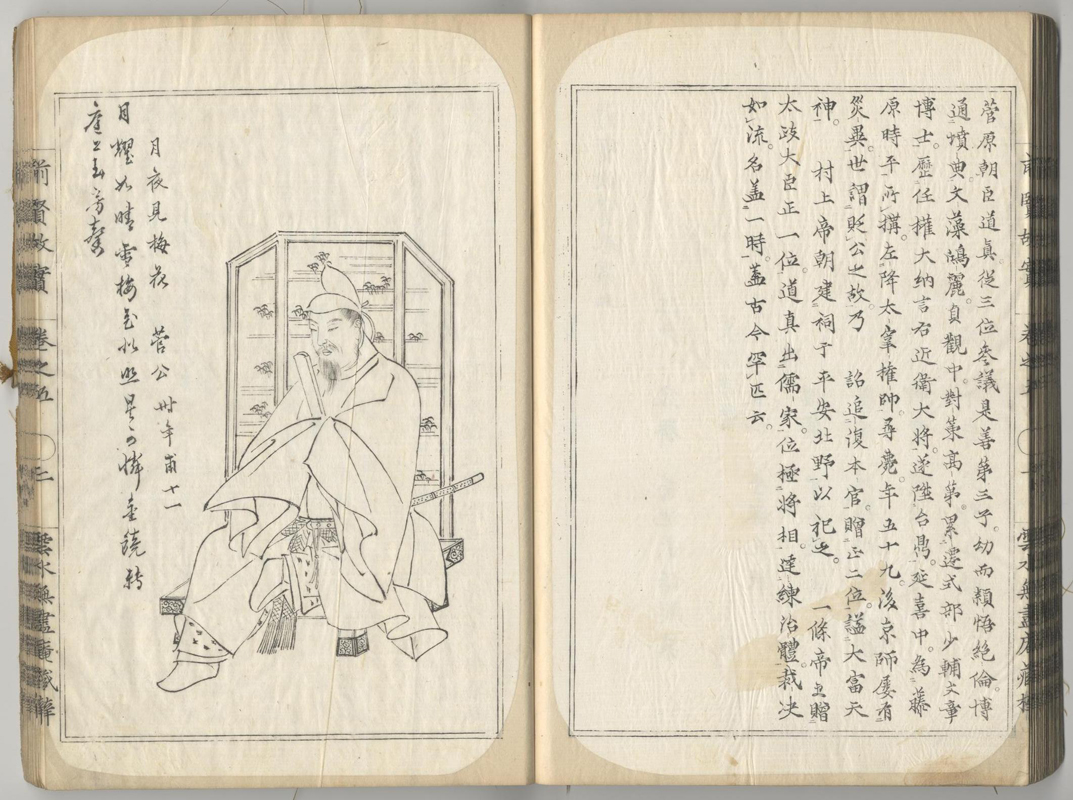 菅原朝臣道真。従三位參議是善第三子。幼而穎悟絶倫。博
通墳典。文藻鴻麗。貞觀中。對策高第。累遷式部少輔文章
博士。歷任權大納言右近衛大將。遂陞台鼎。延喜中。為藤
原時平所搆。左降太宰權帥。尋薨。年五十九。後京師屡有
災異。世謂貶公之故。乃 詔追復本官。贈正二位。謚大富天
神。 村上帝朝建祠于平安北野以祀之。 一條帝至贈
太政大臣正一位。道真出儒家。位極將相。達練治體。裁决
如流。名盖一時。盖古今罕匹云。
月夜見梅花 菅公 卅年甫十一
月耀如晴雪梅花似照星可憐金鏡轉
庭上玉房馨
前賢故實 卷之五 二
前賢故實 卷之五